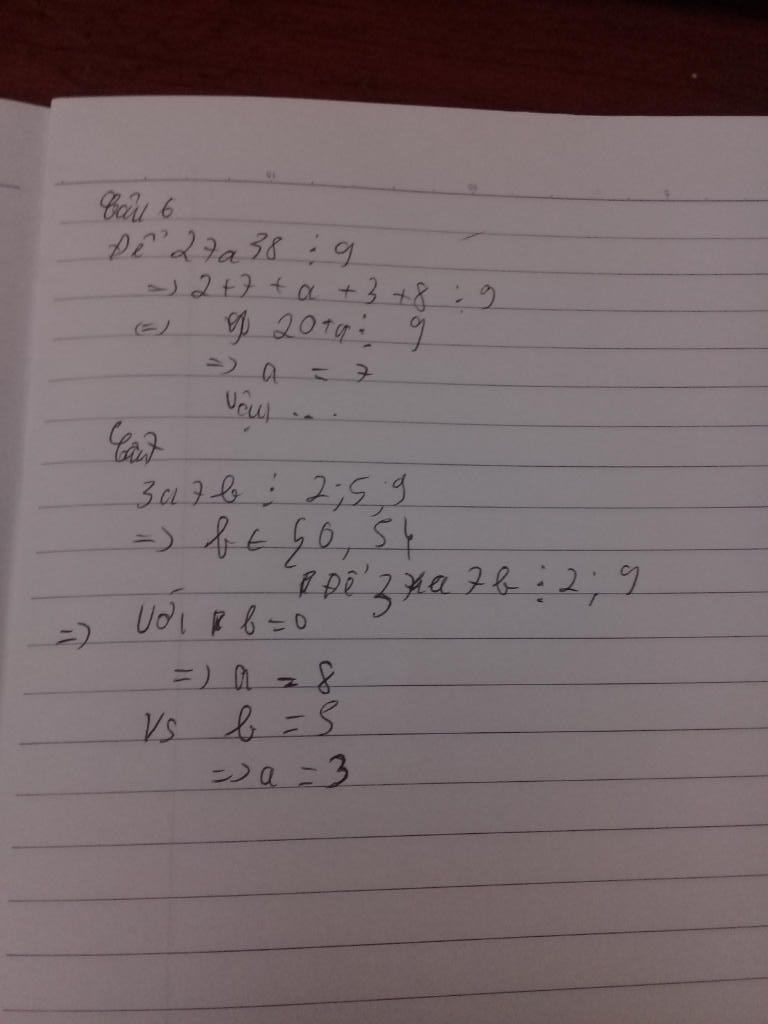 Câu 6
Để 27a38 ⋮ 9
=> 2+7+a+3+8 ⋮ 9
<=> 20+a ⋮ 9
=> a = 7
Vậy ...
Câu 7
3a7b ⋮ 2;5;9
=> b ∈ {0, 5}
Để 3a7b ⋮ 2; 9
=> Với b=0
=> a = 8
Vs b = 5
=> a = 3